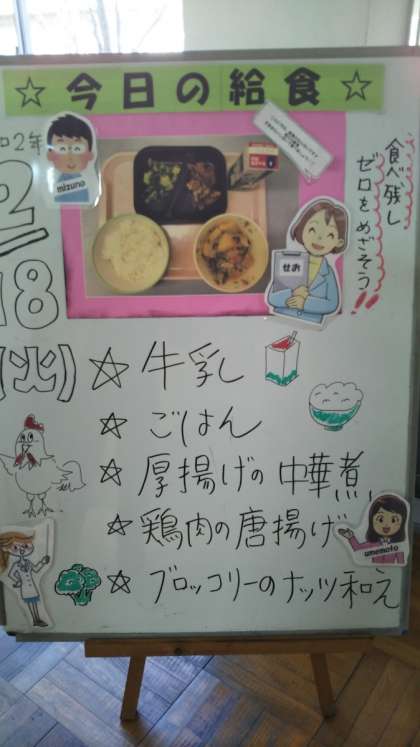 ☆今日の給食☆
2年
mizuno
食べ残し
ゼロをめざそう!!
せお
2
18
(火)
☆ 牛乳
☆ ごはん
☆ 厚揚げの中華煮
☆ 鶏肉の唐揚げ
umemoto
☆ ブロッコリーのナッツ和え